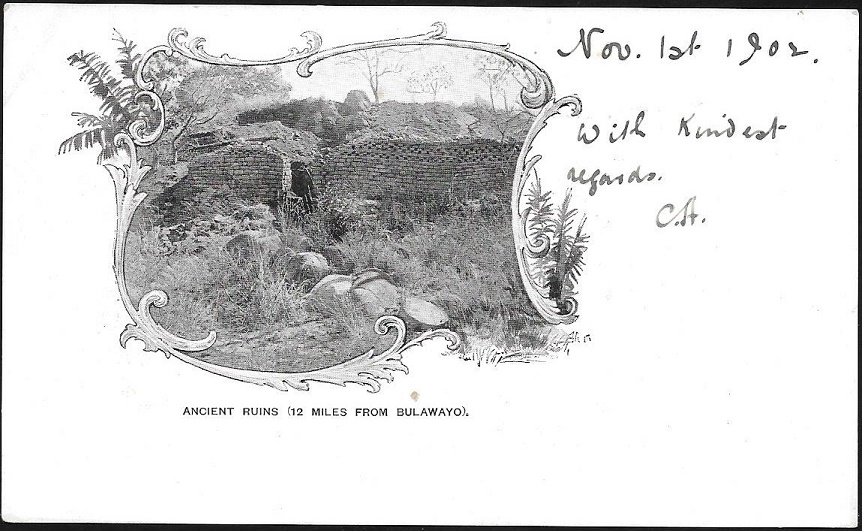 Nov. 1st 1902.
With Kindest
regards.
C.A.
ANCIENT RUINS (12 MILES FROM BULAWAYO).